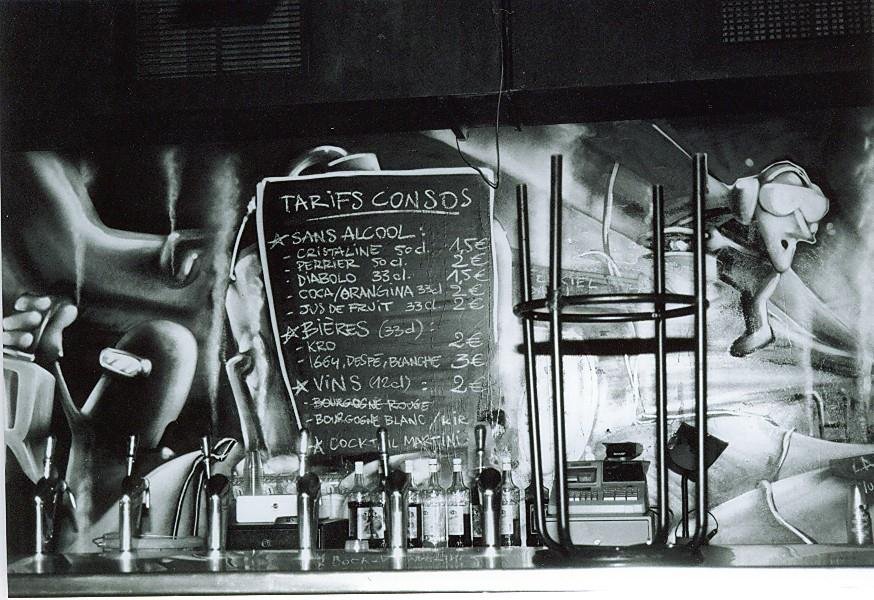 TARIFS CONSOS
SANS ALCOOL :
- CRISTALINE 50cl. 1,5€
- PERRIER 50cl. 2€
- DIABOLO 33cl. 1,5€
- COCA/ORANGINA 33cl 2€
- JUS DE FRUIT 33cl 2€
BIÈRES (33cl) :
- KRO 2€
- 1664, DESPE, BLANCHE 3€
VINS (12cl) : 2€
- BOURGOGNE ROUGE
- BOURGOGNE BLANC / KIR
COCKTAIL MARTINI